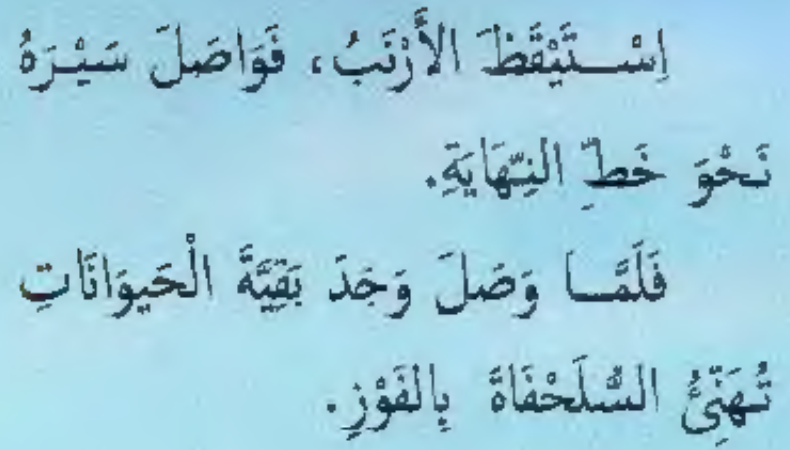 اِسْــتَيْقَظَ الأَرْنَبُ، فَوَاصَلَ سَيْـرَهُ
نَـحْوَ خَطِّ النِّهَايَةِ.
فَلَمَّــا وَصَلَ وَجَدَ بَقِيَّةَ الْحَيوَانَاتِ
تُهَنِّئُ السُّلَحْفَاةَ بِالفَوْزِ.